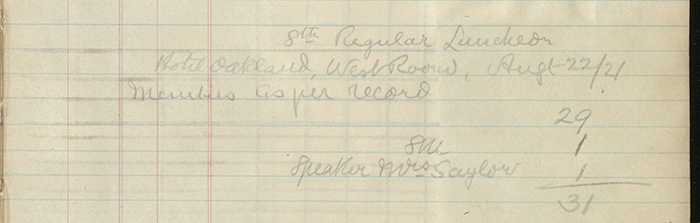 8th Regular Luncheon
Hotel Oakland, West Room, Augt 22/21
Members as per record
29
1
Speaker Mrs Saylor 1
31